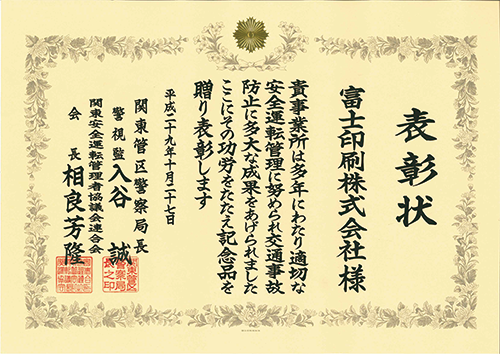 表彰状
富士印刷株式会社様
貴事業所は多年にわたり適切な
安全運転管理に努められ交通事故
防止に多大な成果をあげられました
ここにその功労をたたえ記念品を
贈り表彰します
平成二十九年十月二十七日
関東管区警察局長
警視監 入谷 誠
関東安全運転管理者協議会連合会
会長 相良芳隆